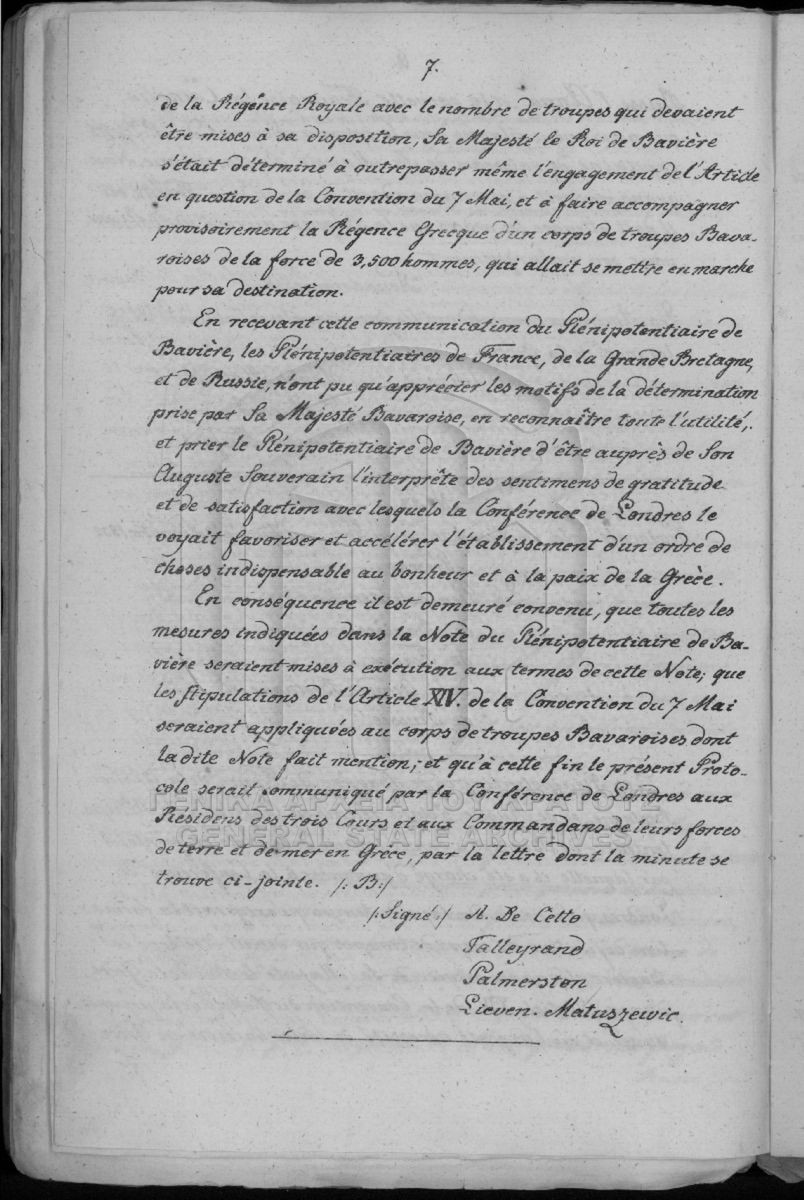 7.
de la Régence Royale avec le nombre de troupes qui devaient
être mises à sa disposition, Sa Majesté le Roi de Bavière
s'était déterminé à outrepasser même l'engagement de l'Article
en question de la Convention du 7 Mai, et à faire accompagner
provisoirement la Régence Grecque d'un corps de troupes Bava-
roises de la force de 3,500 hommes, qui allait se mettre en marche
pour sa destination.
En recevant cette communication du Plénipotentiaire de
Bavière, les Plénipotentiaires de France, de la Grande Bretagne,
et de Russie, n'ont pu qu'apprécier les motifs de la détermination
prise par Sa Majesté Bavaroise, en reconnaître toute l'utilité,
et prier le Plénipotentiaire de Bavière d'être auprès de Son
Auguste Souverain l'interprête des sentimens de gratitude
et de satisfaction avec lesquels la Conférence de Londres le
voyait favoriser et accélérer l'établissement d'un ordre de
choses indispensable au bonheur et à la paix de la Grèce.
En conséquence il est demeuré convenu, que toutes les
mesures indiquées dans la Note du Plénipotentiaire de Ba-
vière seraient mises à exécution aux termes de cette Note; que
les stipulations de l'Article XIV. de la Convention du 7 Mai
seraient appliquées au corps de troupes Bavaroises dont
la dite Note fait mention; et qu'à cette fin le présent Proto-
cole serait communiqué par la Conférence de Londres aux
Résidens des trois Cours et aux Commandans de leurs forces
de terre et de mer en Grèce, par la lettre dont la minute se
trouve ci-jointe. /: B :/
/: Signé :/ A. De Cetto
Talleyrand
Palmerston
Lieven. Matuszewic.
ΓΕΝΙΚΑ ΑΡΧΕΙΑ ΤΟΥ ΚΡΑΤΟΥΣ
GENERAL STATE ARCHIVES